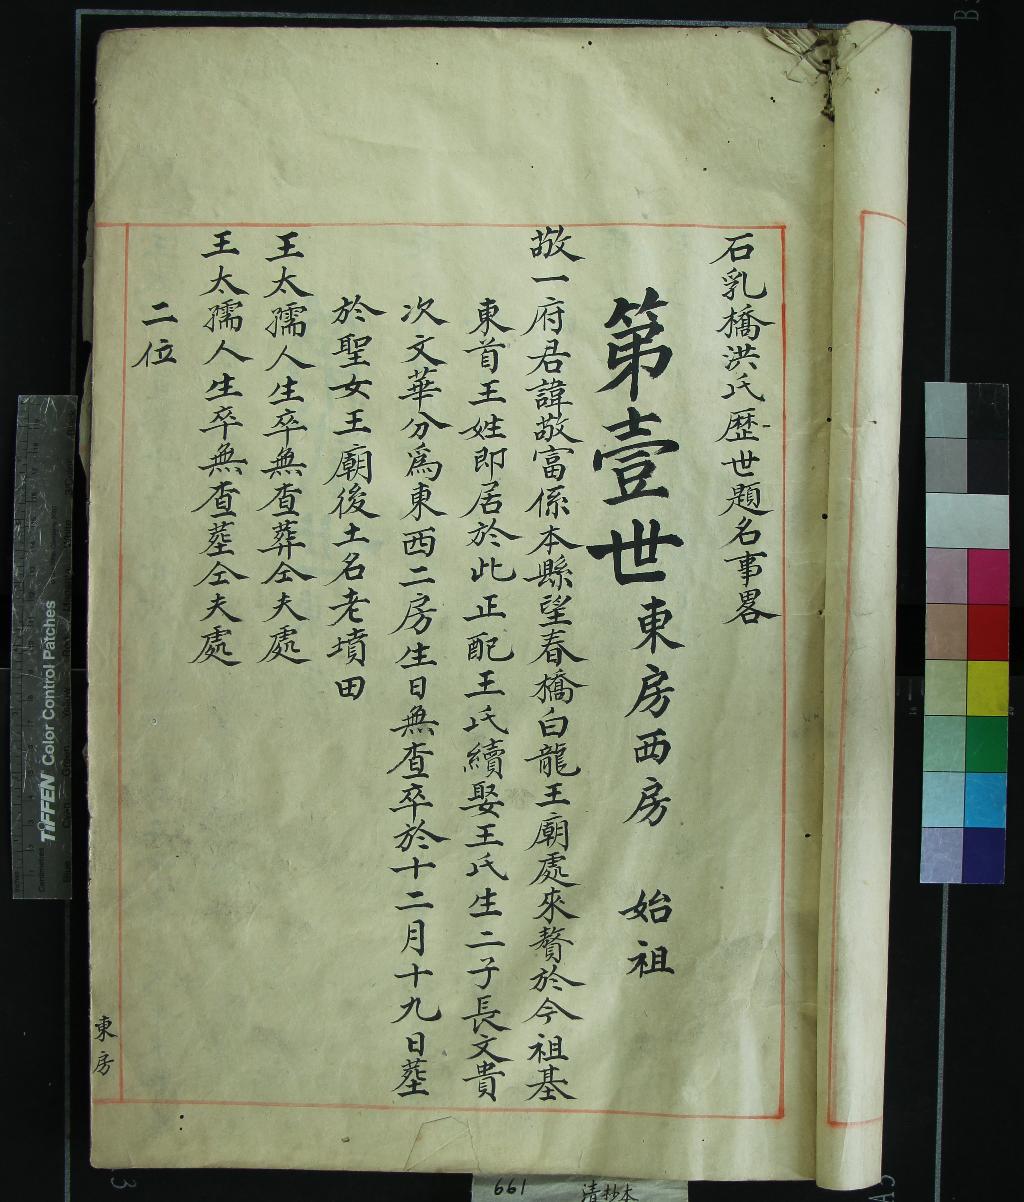 石乳橋洪氏歷世題名事畧
第壹世東房西房 始祖
敬一府君諱敬富係本縣望春橋白龍王廟處來贅於今祖基
東首王姓即居於此正配王氏續娶王氏生二子長文貴
次文華分為東西二房生日無查卒於十二月十九日塟
於聖女王廟後土名老墳田
王太孺人生卒無查葬仝夫處
王太孺人生卒無查塟仝夫處
二位
東房
TIFFEN Color Control Patches
661 清抄本